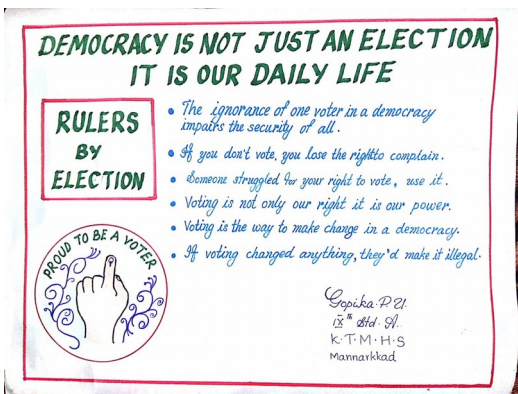 DEMOCRACY IS NOT JUST AN ELECTION
IT IS OUR DAILY LIFE
RULERS
BY
ELECTION
• The ignorance of one voter in a democracy
impairs the security of all.
• If you don't vote, you lose the right to complain.
• Someone struggled for your right to vote, use it.
• Voting is not only our right it is our power.
• Voting is the way to make change in a democracy.
• If voting changed anything, they'd make it illegal.
PROUD TO BE A VOTER
Gopika. P. 21
IXth Std. A.
K.T.M.H.S
Mannarkkad